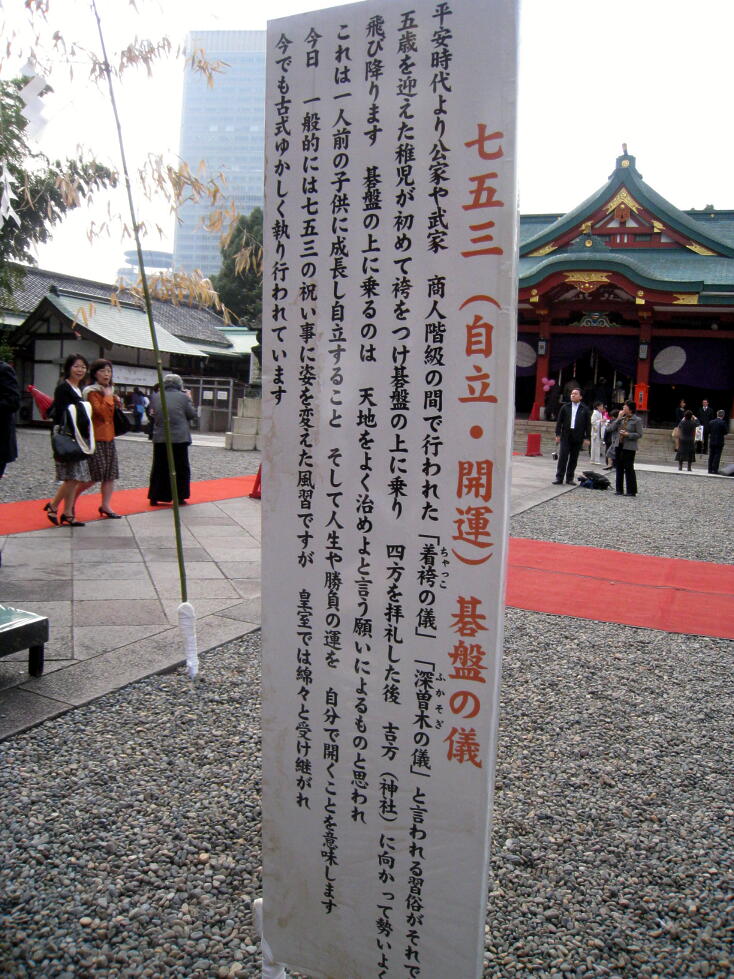 七五三（自立・開運）碁盤の儀
平安時代より公家や武家　商人階級の間で行われた「着袴の儀」「深曽木の儀」と言われる習俗がそれで
ちゃっこ
ふかそぎ
五歳を迎えた稚児が初めて袴をつけ碁盤の上に乗り　四方を拝礼した後　吉方（神社）に向かって勢いよく
飛び降ります　碁盤の上に乗るのは　天地をよく治めよと言う願いによるものと思われ
これは一人前の子供に成長し自立すること　そして人生や勝負の運を　自分で開くことを意味します
今日　一般的には七五三の祝い事に姿を変えた風習ですが　皇室では綿々と受け継がれ
今でも古式ゆかしく執り行われています